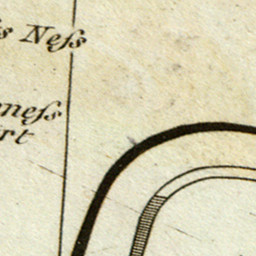 s Neſs
neſs
rt